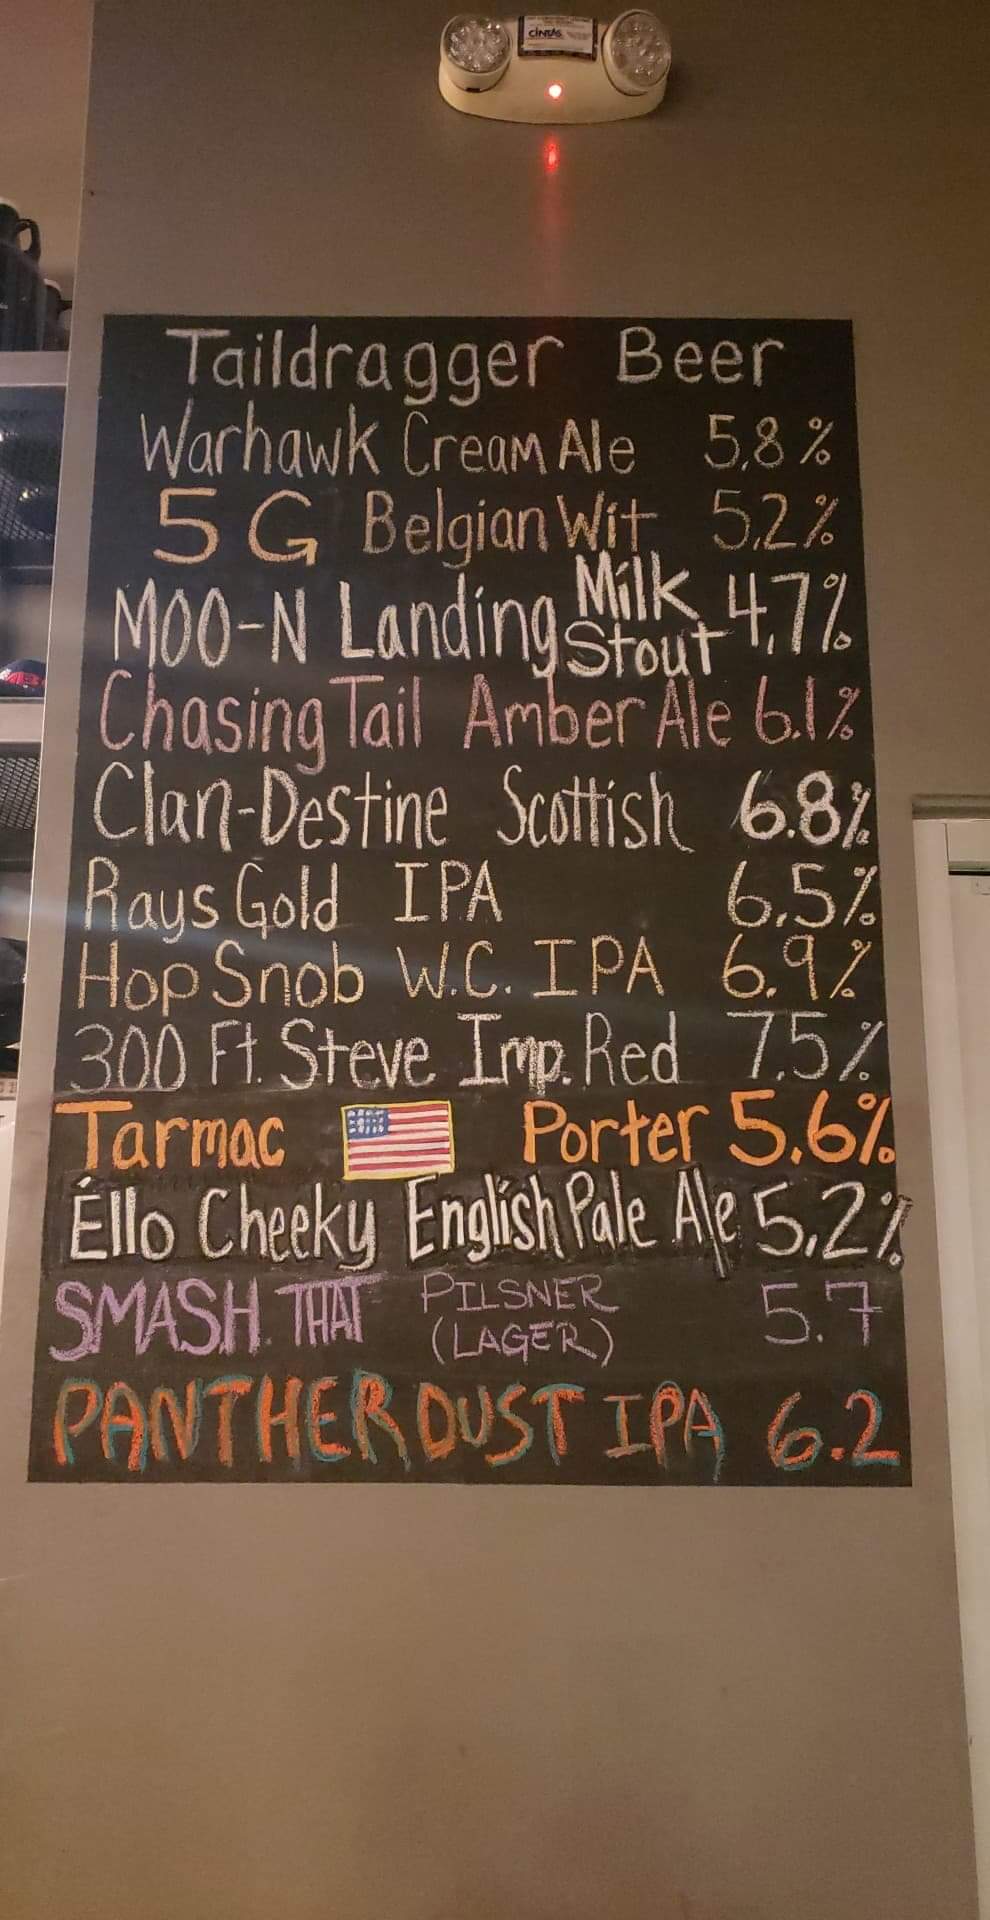 CINTAS
Taildragger Beer
Warhawk Cream Ale 5.8%
5G Belgian Wit 5.2%
MOO-N Landing Milk Stout 4.7%
Chasing Tail Amber Ale 6.1%
Clan-Destine Scottish 6.8%
Rays Gold IPA 6.5%
Hop Snob W.C. IPA 6.9%
300 Ft. Steve Imp. Red 7.5%
Tarmac Porter 5.6%
Éllo Cheeky English Pale Ale 5.2%
SMASH THAT PILSNER (LAGER) 5.7
PANTHER DUST IPA 6.2